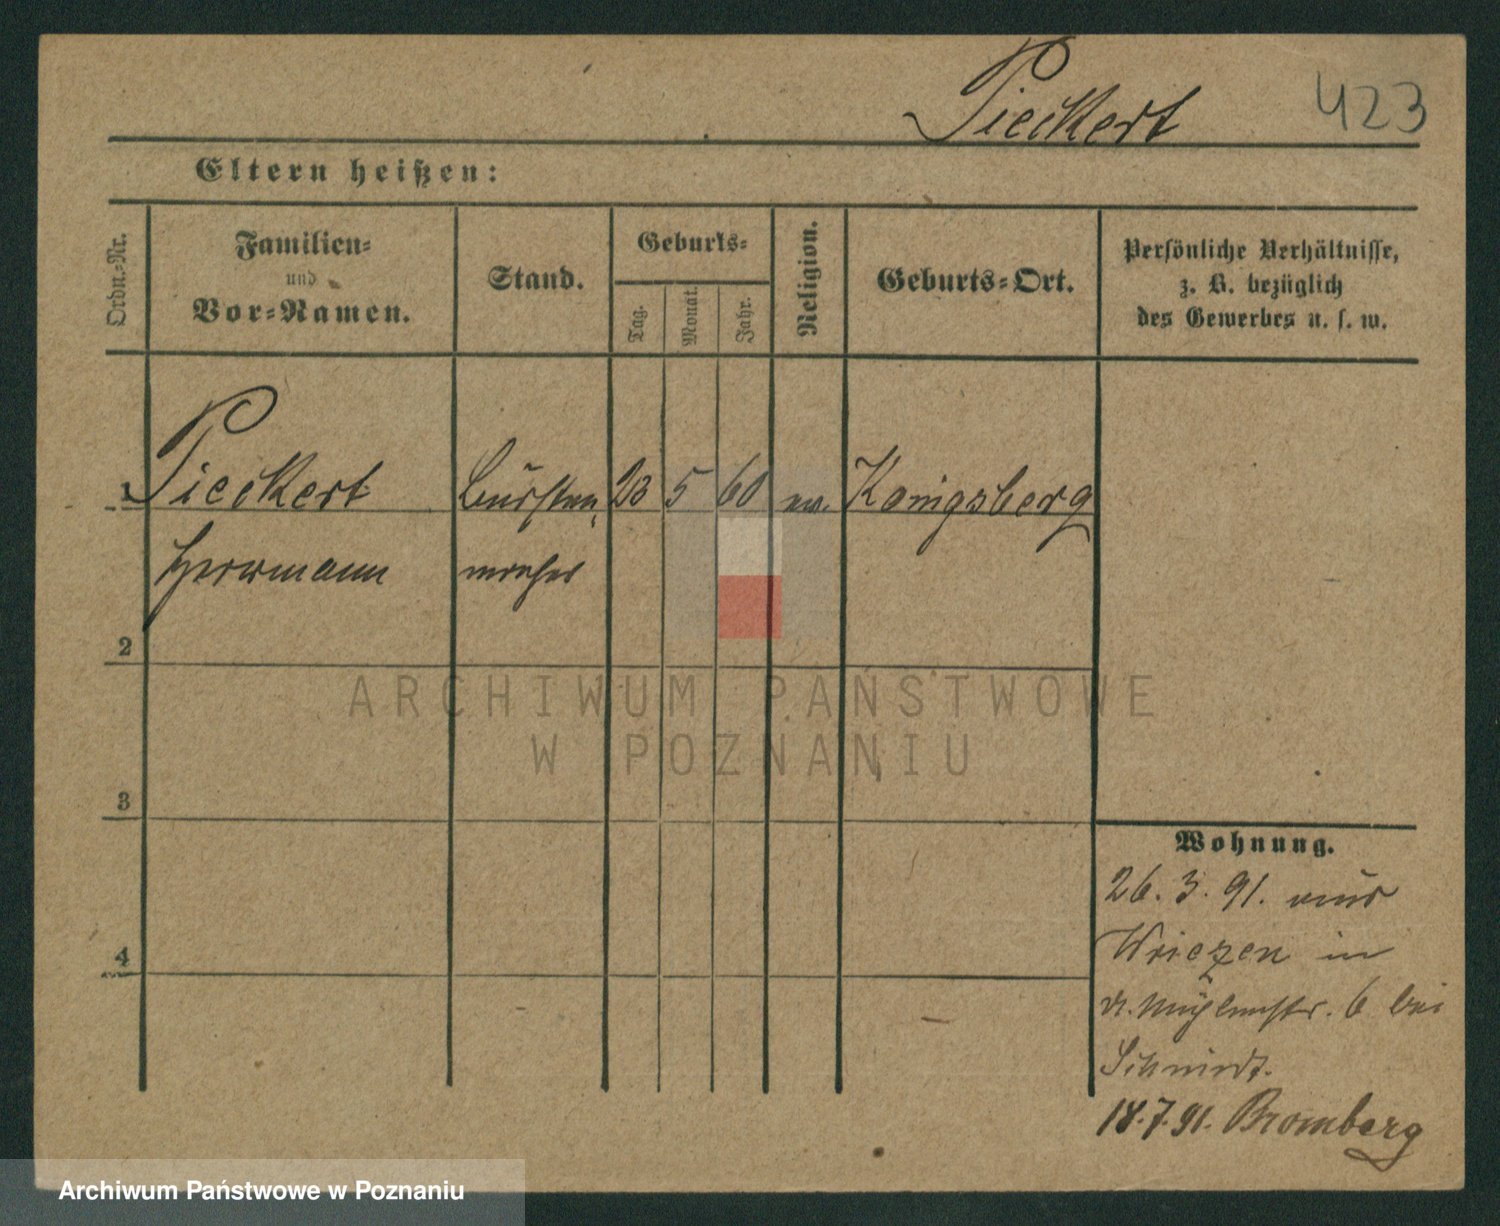 Pieckert 423
Eltern heißen:
Ordn.-Nr.
Familien-
und
Vor-Namen.
Stand.
Geburts-
Tag.
Monat.
Jahr.
Religion.
Geburts-Ort.
Persönliche Verhältnisse,
z. B. bezüglich
des Gewerbes u. s. w.
1 Pieckert Bürsten 23 5 60 ev. Konigsberg
Herrmann macher
2
ARCHIWUM PAŃSTWOWE
W POZNANIU
3
Wohnung.
26. 3. 91. aus
Wriezen in
6 bei
Schmidt.
4
18.7.91. Bromberg
Archiwum Państwowe w Poznaniu